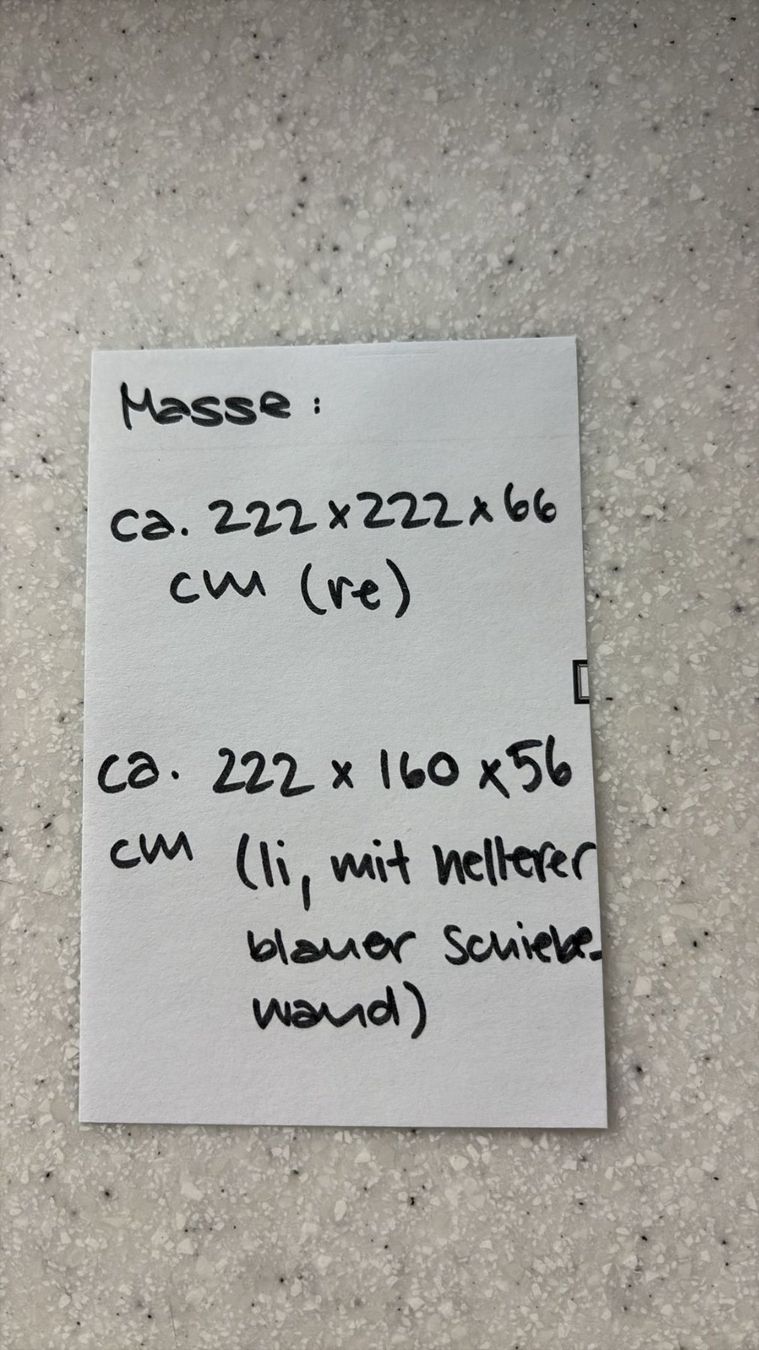 Masse:
ca. 222 x 222 x 66
cm (re)
ca. 222 x 160 x 56
cm (li, mit hellerer
blauer Schiebe-
wand)